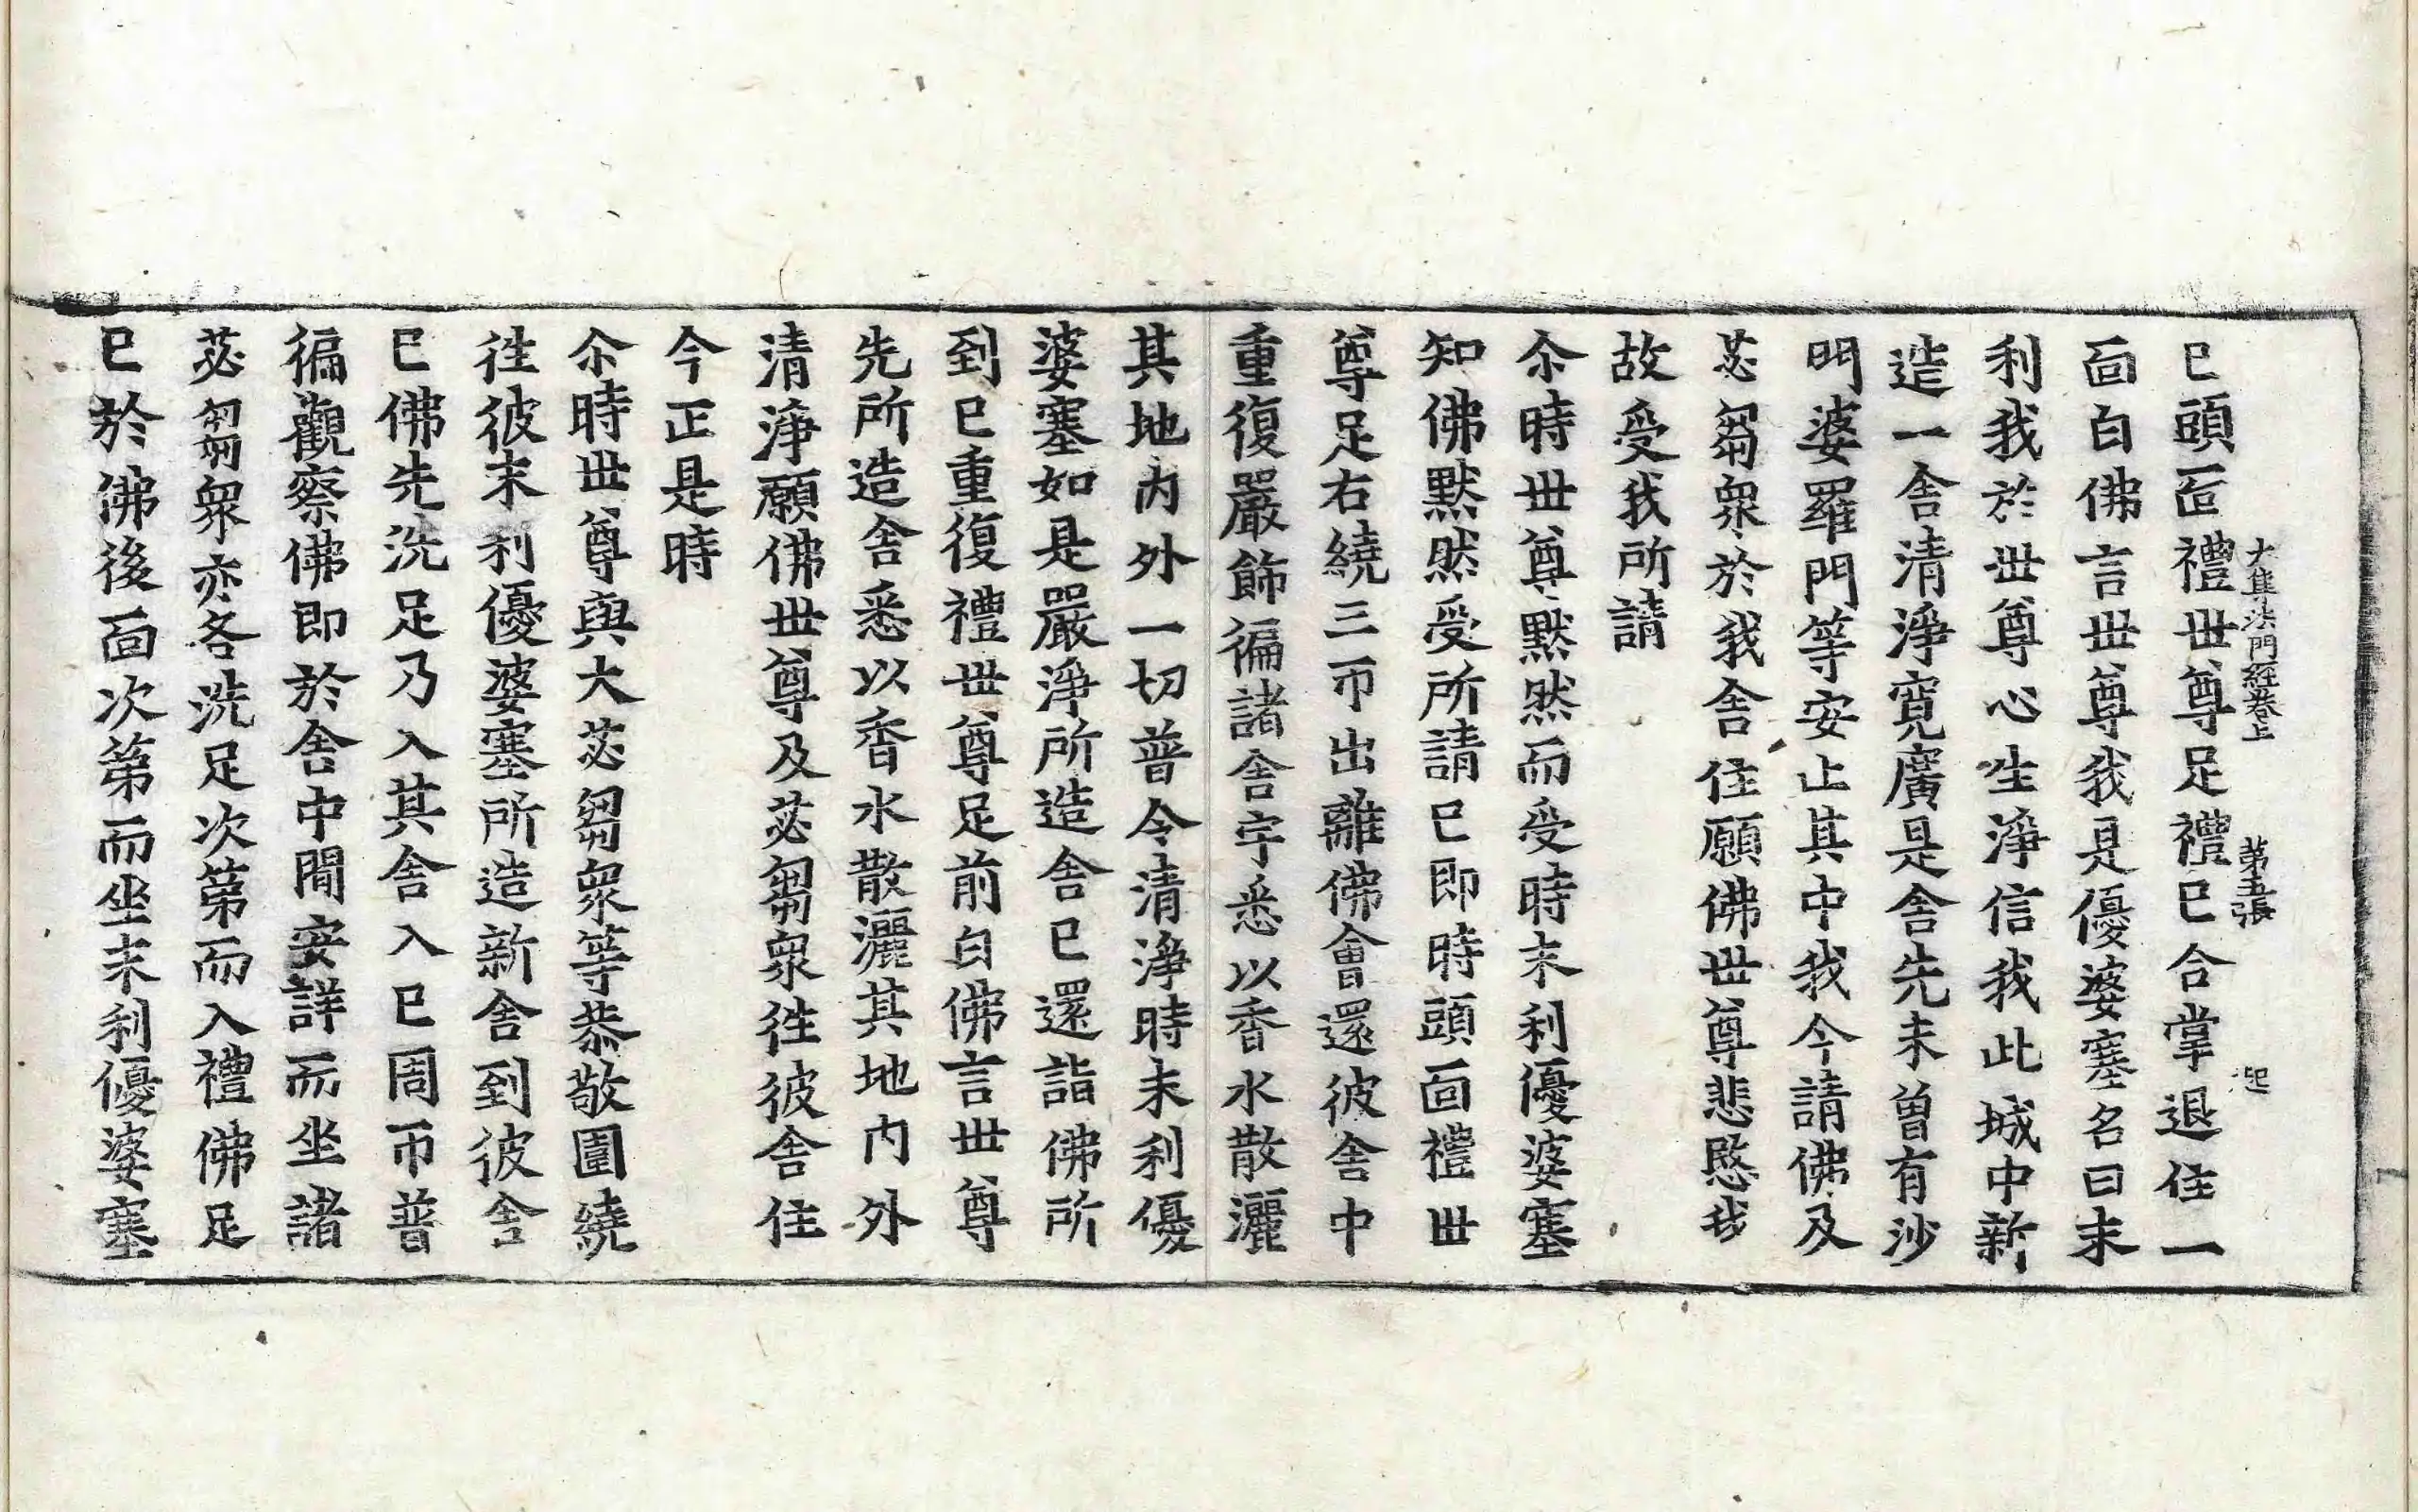 大集法門經卷上 第五張 起
已頭面禮世尊足禮已合掌退住一
面白佛言世尊我是優婆塞名曰末
利我於世尊心生淨信我此城中新
造一舍清淨寬廣是舍先未曾有沙
門婆羅門等安止其中我今請佛及
苾芻衆於我舍住願佛世尊悲愍我
故受我所請
尒時世尊默然而受時末利優婆塞
知佛默然受所請已即時頭面禮世
尊足右繞三帀出離佛會還彼舍中
重復嚴飾徧諸舍宇悉以香水散灑
其地内外一切普令清淨時末利優
婆塞如是嚴淨所造舍已還詣佛所
到已重復禮世尊足前白佛言世尊
先所造舍悉以香水散灑其地内外
清淨願佛世尊及苾芻衆徃彼舍住
今正是時
尒時世尊與大苾芻衆等恭敬圍繞
徃彼末利優婆塞所造新舍到彼舍
已佛先洗足乃入其舍入已周帀普
徧觀察佛即於舍中間安詳而坐諸
苾芻衆亦各洗足次第而入禮佛足
已於佛後面次第而坐末利優婆塞